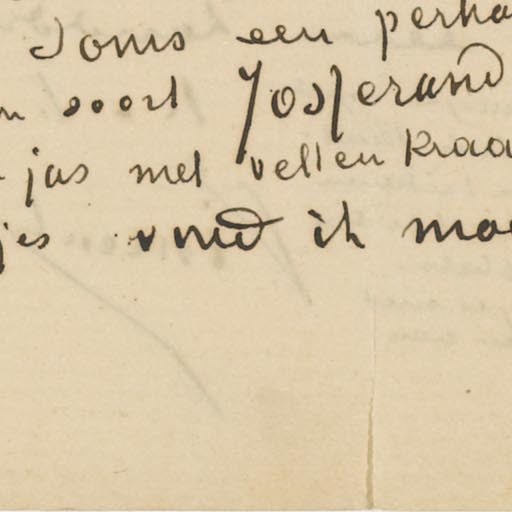 Soms een perha
n soort Josserand
jas met vellen kraa
jes vind ik moe